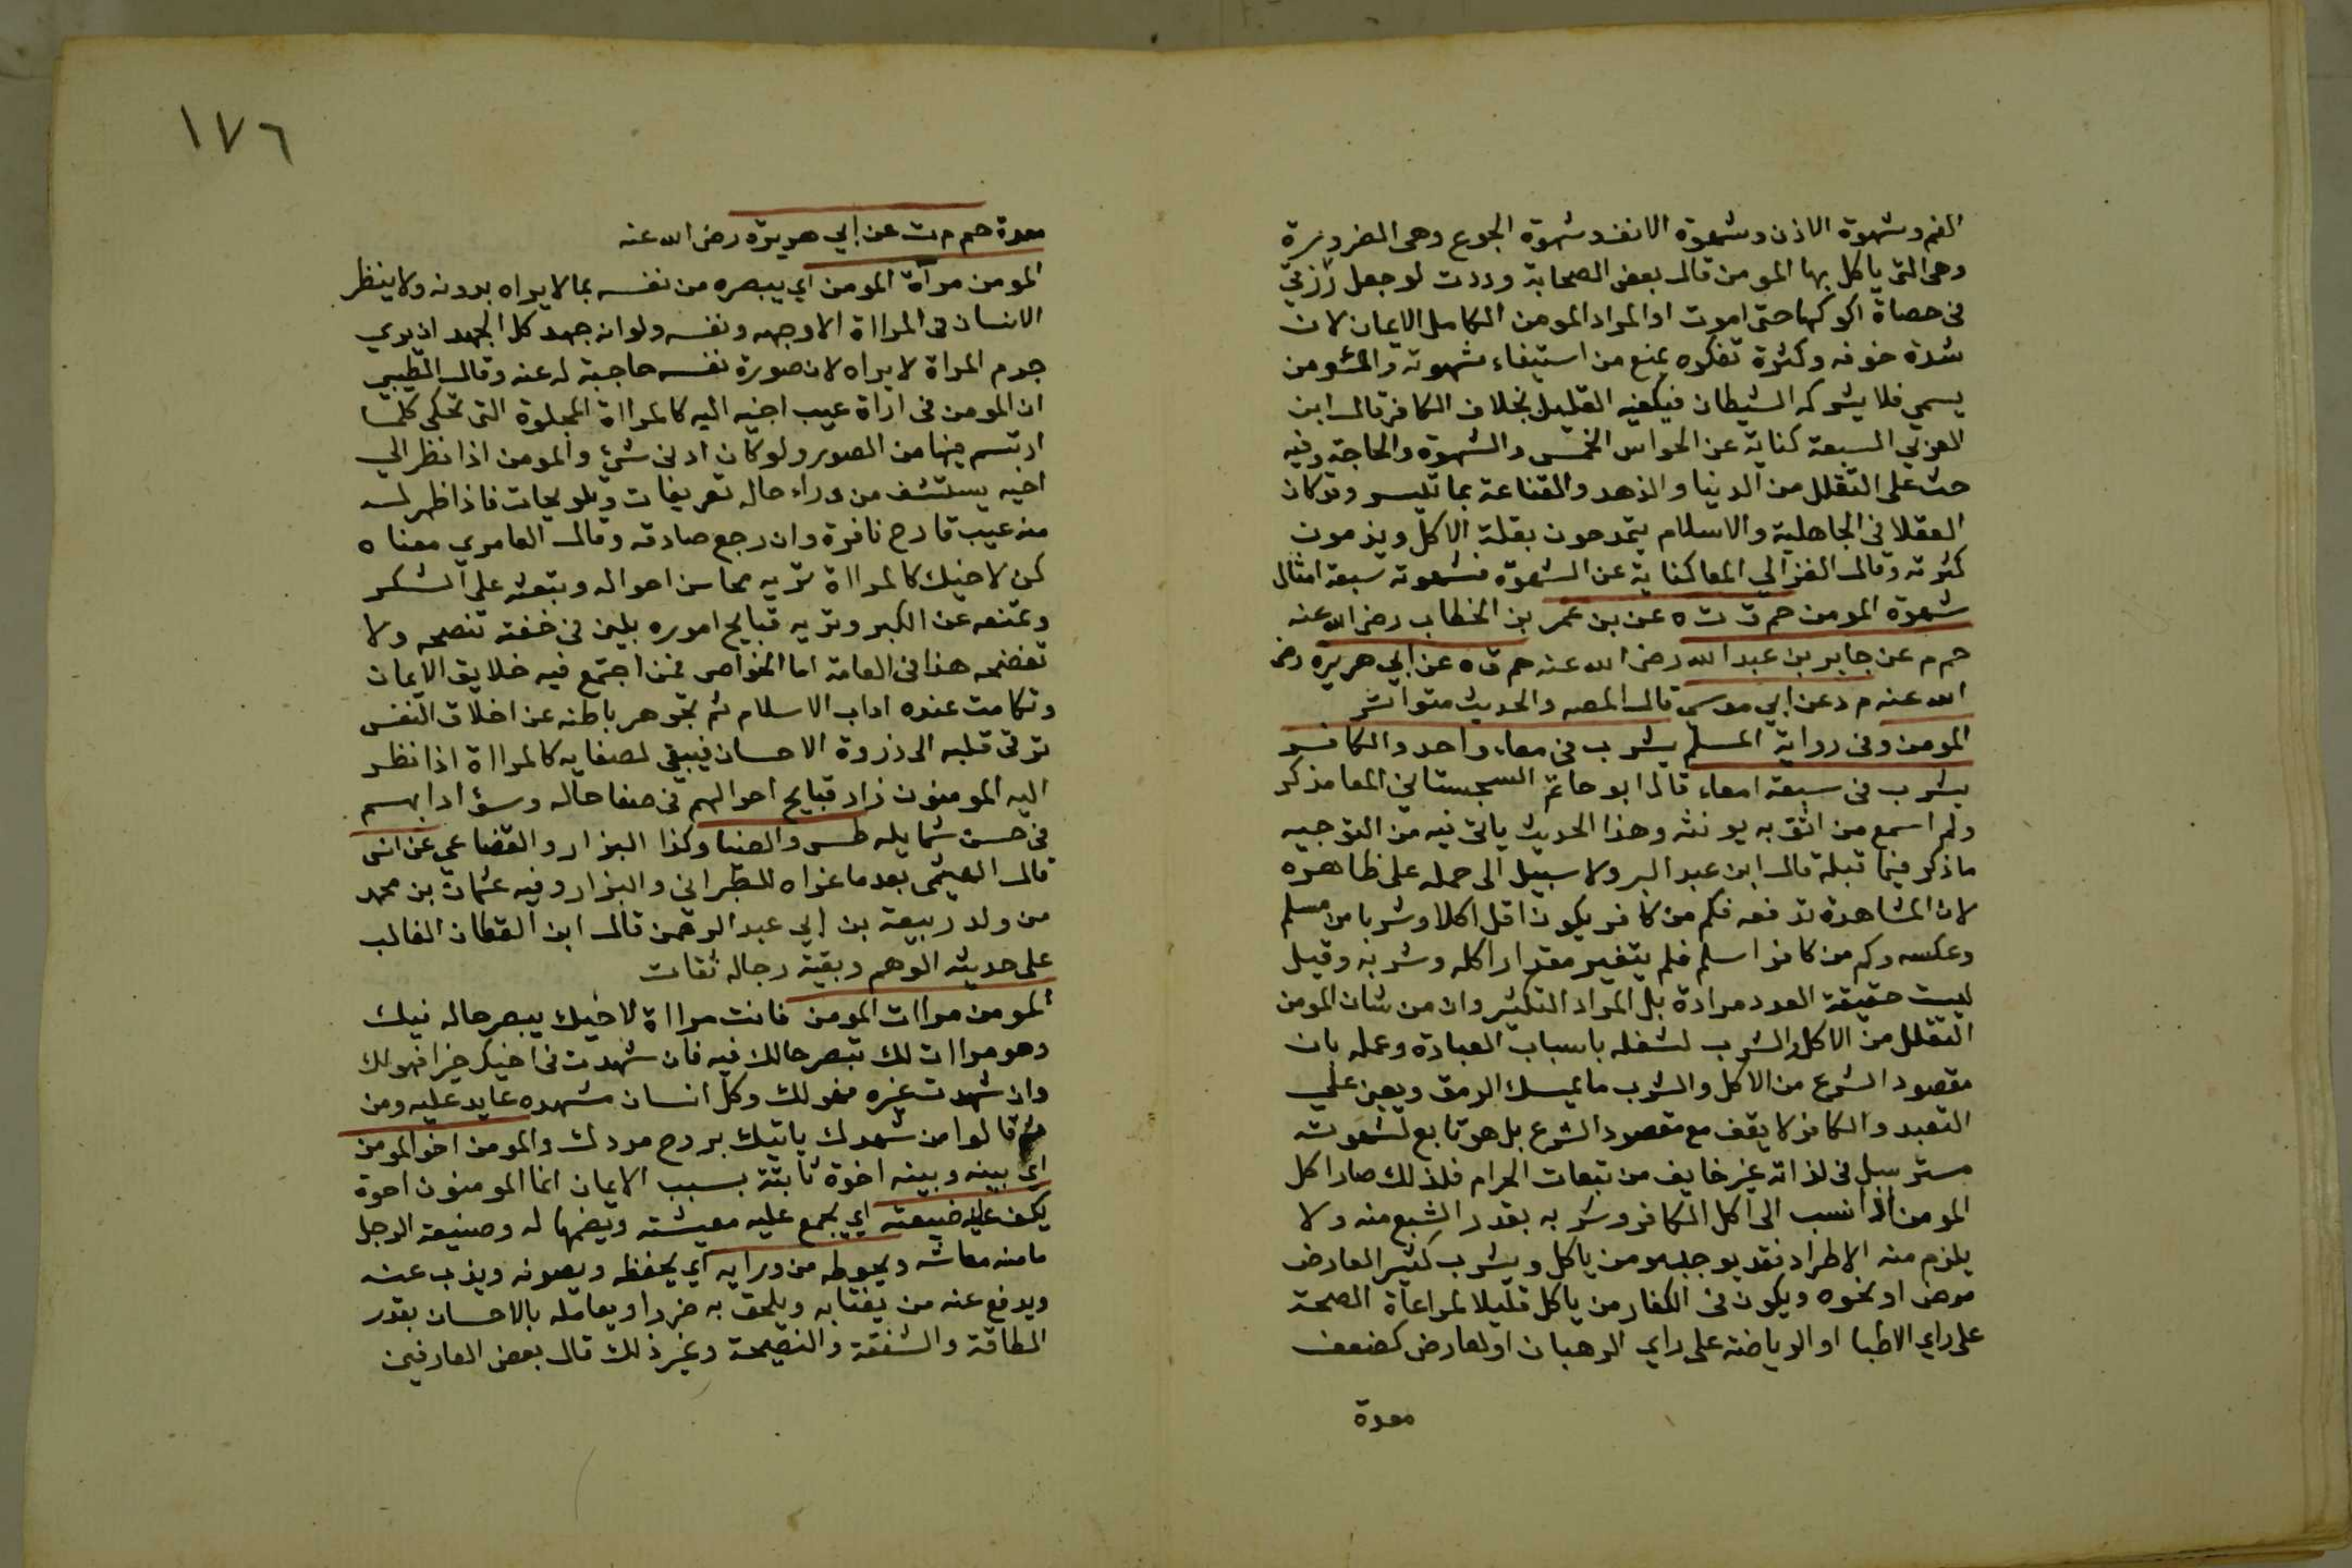 الفم وشهوة الاذن وشهوة الانف وشهوة الجوع وهى الضرورية
وهى التى ياكل بها المومن قال بعض الصحابة وددت لو جعل رزقي
فى حصاة الوكها حتى اموت او المراد المومن الكامل الايمان لان
شدة خوفه وكثرة تفكره يمنع من استيفاء شهوته والمئومن
يسمي فلا يشركه الشيطان فيكفيه القليل بخلاف الكافر قال ابن
العربي السبعة كناية عن الحواس الخمس والشهوة والحاجة وفيه
حث على التقلل من الدنيا والزهد والقناعة بما تيسر وقد كان
العقلا فى الجاهلية والاسلام يتمدحون بقلة الاكل ويذمون
كثرته وقال الغزالي المعا كناية عن الشهوة فشهوته سبعة امثال
شهوة المومن حم ق ت ه عن بن عمر بن الخطاب رضى الله عنه
حم م عن جابر بن عبد الله رضى الله عنه حم ق ه عن ابي هريره رضى
الله عنه م د عن ابي موسي قال المصه والحديث متواتر
المومن وفى رواية المسلم يشرب فى معاء واحد والكافر
يشرب فى سبعة امعاء قال ابو حاتم السجستاني المعا مذكر
ولم اسمع من اثق به يونثه وهذا الحديث ياتى فيه من التوجيه
ماذكر فيما قبله قال ابن عبد البر ولا سبيل الى حمله على ظاهره
لان المشاهدة تدفعه فكم من كافر يكون اقل اكلا وشربا من مسلم
وعكسه وكم من كافر اسلم فلم يتغير مقدار اكله وشربه وقيل
ليست حقيقة العدد مرادة بل المراد التكثير وان من شان المومن
التقلل من الاكل والشرب لشغله باسباب العبادة وعلمه بان
مقصود الشرع من الاكل والشرب ما يمسك الرمق ويعين علي
التعبد والكافر لا يقف مع مقصود الشرع بل هو تابع لشهوته
مسترسل فى لذاته غير خايف من تبعات الحرام فلذلك صار اكل
المومن اذا نسب الى اكل الكافر وشربه بقدر الشبع منه ولا
يلزم منه الاطراد فقد يوجد مومن ياكل ويشرب كثير العارض
مرض او نحوه ويكون فى الكفار من ياكل قليلا لمراعاة الصحة
على راي الاطبا او الرياضة على راي الرهبان او لعارض كضعف
معدة
١٧٦
معدة حم م ت عن ابي هريرة رضى الله عنه
المومن مرآة المومن اي يبصره من نفسه بما لا يراه بدونه ولا ينظر
الانسان فى المرااة الا وجهه ونفسه ولو ان جهد كل الجهد ان يري
جرم المراة لا يراه لان صورة نفسه حاجبة له عنه وقال الطيبي
ان المومن فى اراة عيب اخيه اليه كالمرااة المجلوة التى تحكي كلما
ارتسم فيها من الصور ولو كان ادنى شئ والمومن اذا نظر الي
اخيه يستشف من وراء حاله تعريفات وتلويحات فاذا ظهر له
منه عيب قادح نافره وان رجع صادقه وقال العامري معناه
كن لاخيك كالمرااة تريه محاسن احواله وبتعثه على الشكر
وتمنعه عن الكبر وتريه قبايح اموره بلين فى خفية تنصحه ولا
تفضحه هذا فى العامة اما الخواص فمن اجتمع فيه خلايق الايمان
وتكامت عنده اداب الاسلام ثم تجوهر باطنه عن اخلاق النفس
ترقى قلبه الى ذروة الاحسان فيبقي لصفايه كالمرااة اذا نظر
اليه المومنون زاد قبايح احوالهم فى صفا حاله وسؤ ادابهم
فى حسن شمايله طس والضيا وكذا البزار والقضاعي عن انس
قال الهيثمي بعد ما عزاه للطبراني والبزار وفيه عثمان بن محمد
من ولد ربيعة بن ابي عبد الرحمن قال ابن القطان الغالب
على حديثه الوهم وبقية رجاله ثقات
المومن مراات المومن فانت مرااة لاخيك يبصر حاله فيك
وهو مراات لك تبصر حالك فيه فان شهدت فى اخيك خيرا فهو لك
وان شهدت غيره فهو لك وكل انسان مشهده عايد عليه ومن
ثم قالوا من شهدك ياتيك بروح مددك والمومن اخو المومن
اي بينه وبينه اخوة ثابتة بسبب الايمان انما المومنون اخوة
يكف عليه ضيعته اي يجمع عليه معيشته ويضمها له وضيعة الرجل
مامنه معاشه ويحوطه من ورايه اي يحفظه ويصونه ويذب عنه
ويدفع عنه من يغتابه ويلحق به ضررا ويعامله بالاحسان بقدر
الطاقة والشفقة والنصيحة وغير ذلك قال بعض العارفين